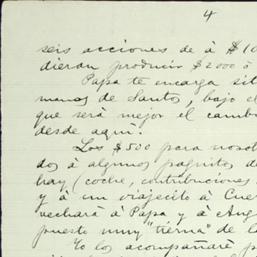 4
seis acciones de à $10
dieran producir $2000 ó
Papa te encarga sit
manos de Santos, bajo el
que será mejor el cambi
desde aquí.
Los $500 para nosot
dos à algunos paguitos de
hay (coche, contribuciones
y à un viajecito à Cuer
vechará à Papa y à Ang
puesto muy "tierna" de l
Yo los acompañaré p